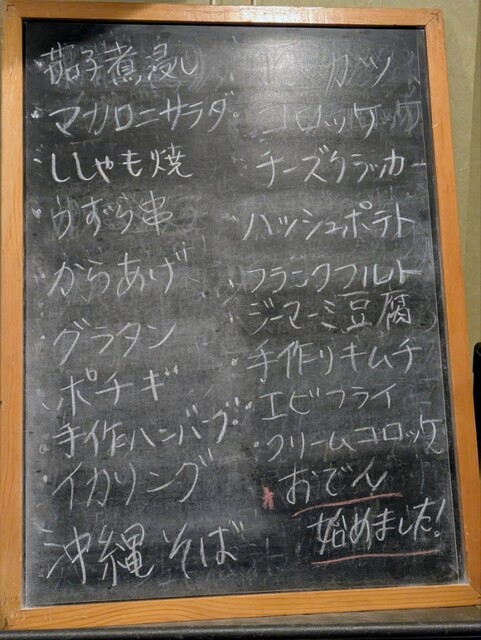 茄子煮浸し
マカロニサラダ
ししゃも焼
うずら串
からあげ
グラタン
ポテギ
手作ハンバーグ
イカリング
沖縄そば
カツ
コロッケ
チーズクラッカー
ハッシュポテト
フランクフルト
ジーマーミ豆腐
手作りキムチ
エビフライ
クリームコロッケ
*おでん
始めました!